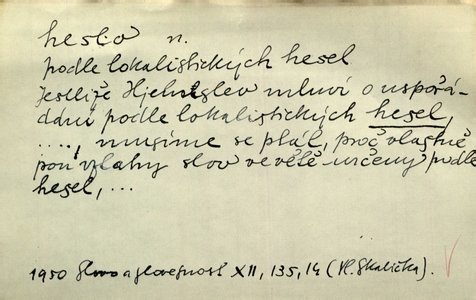 heslo n.
podle lokalistických hesel
Jestliže Hjelmslev mluví o uspořá-
dání podle lokalistických hesel,
...., musíme se ptát, proč vlastně
pou vztahy slov ve větě určeny podle
hesel, ...
1950 Slovo a slovesnost XII, 135, 14 (Vl. Skalička).